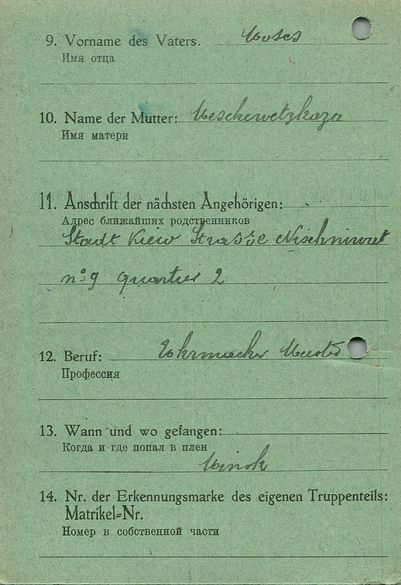 9. Vorname des Vaters. Moses
Имя отца
10. Name der Mutter: Meschewetzkaza
Имя матери
11. Anschrift der nächsten Angehörigen:
Адрес ближайших родственников
Stadt Kiew Strasse
no 9 Quartier 2
12. Beruf: Uhrmacher
Профессия
13. Wann und wo gefangen:
Когда и где попал в плен
Minsk
14. Nr. der Erkennungsmarke des eigenen Truppenteils:
Matrikel=Nr.
Номер в собственной части